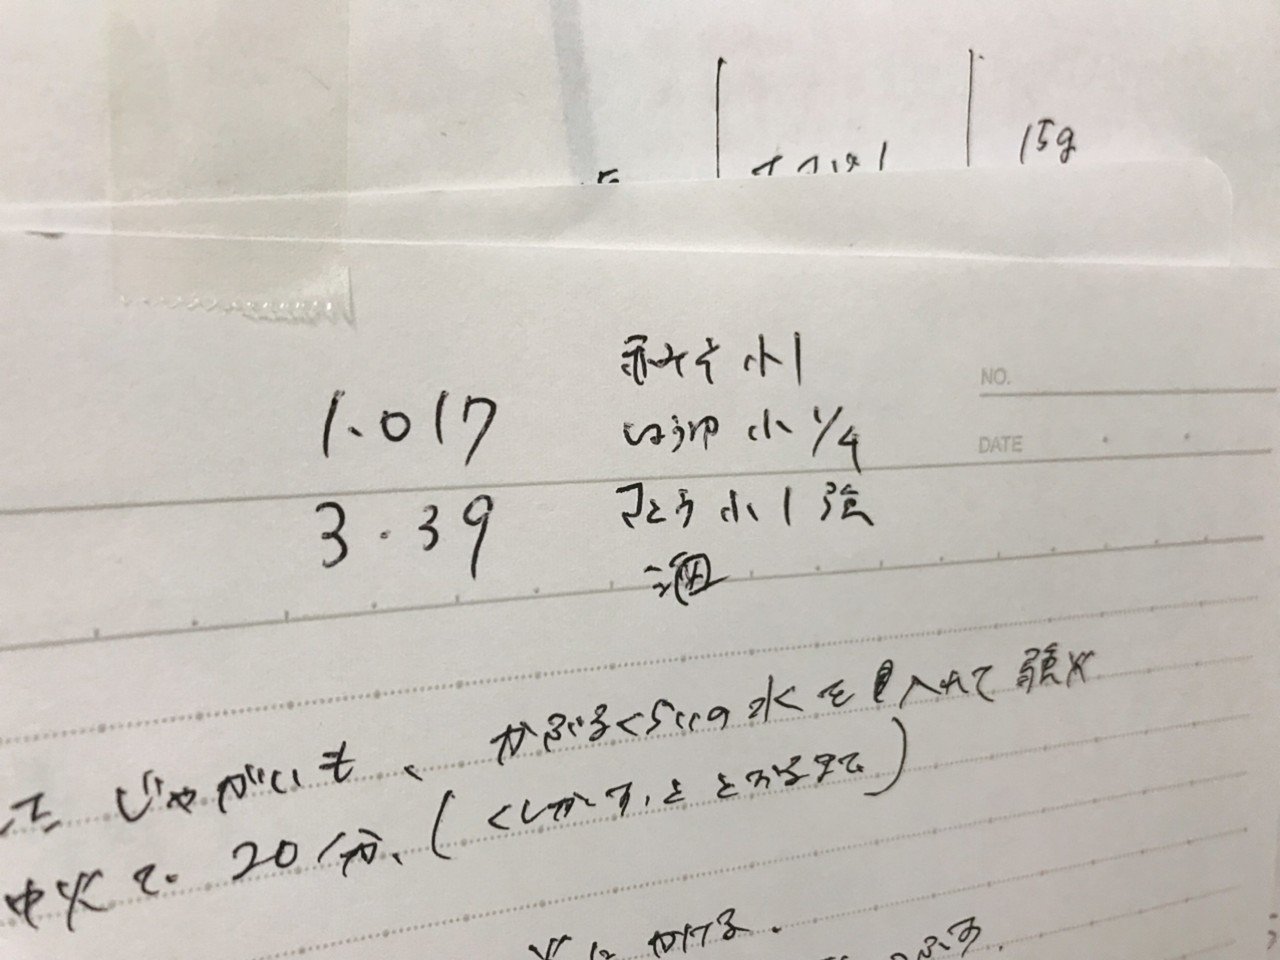 15g
赤みそ 小1
NO.
1.017
しょうゆ 小1/4
DATE
3.39
さとう 小1強
じゃがいも、かぶるくらいの水を入れて強火
中火で、20分、(くしがすっと とおるまで)
火にかける.